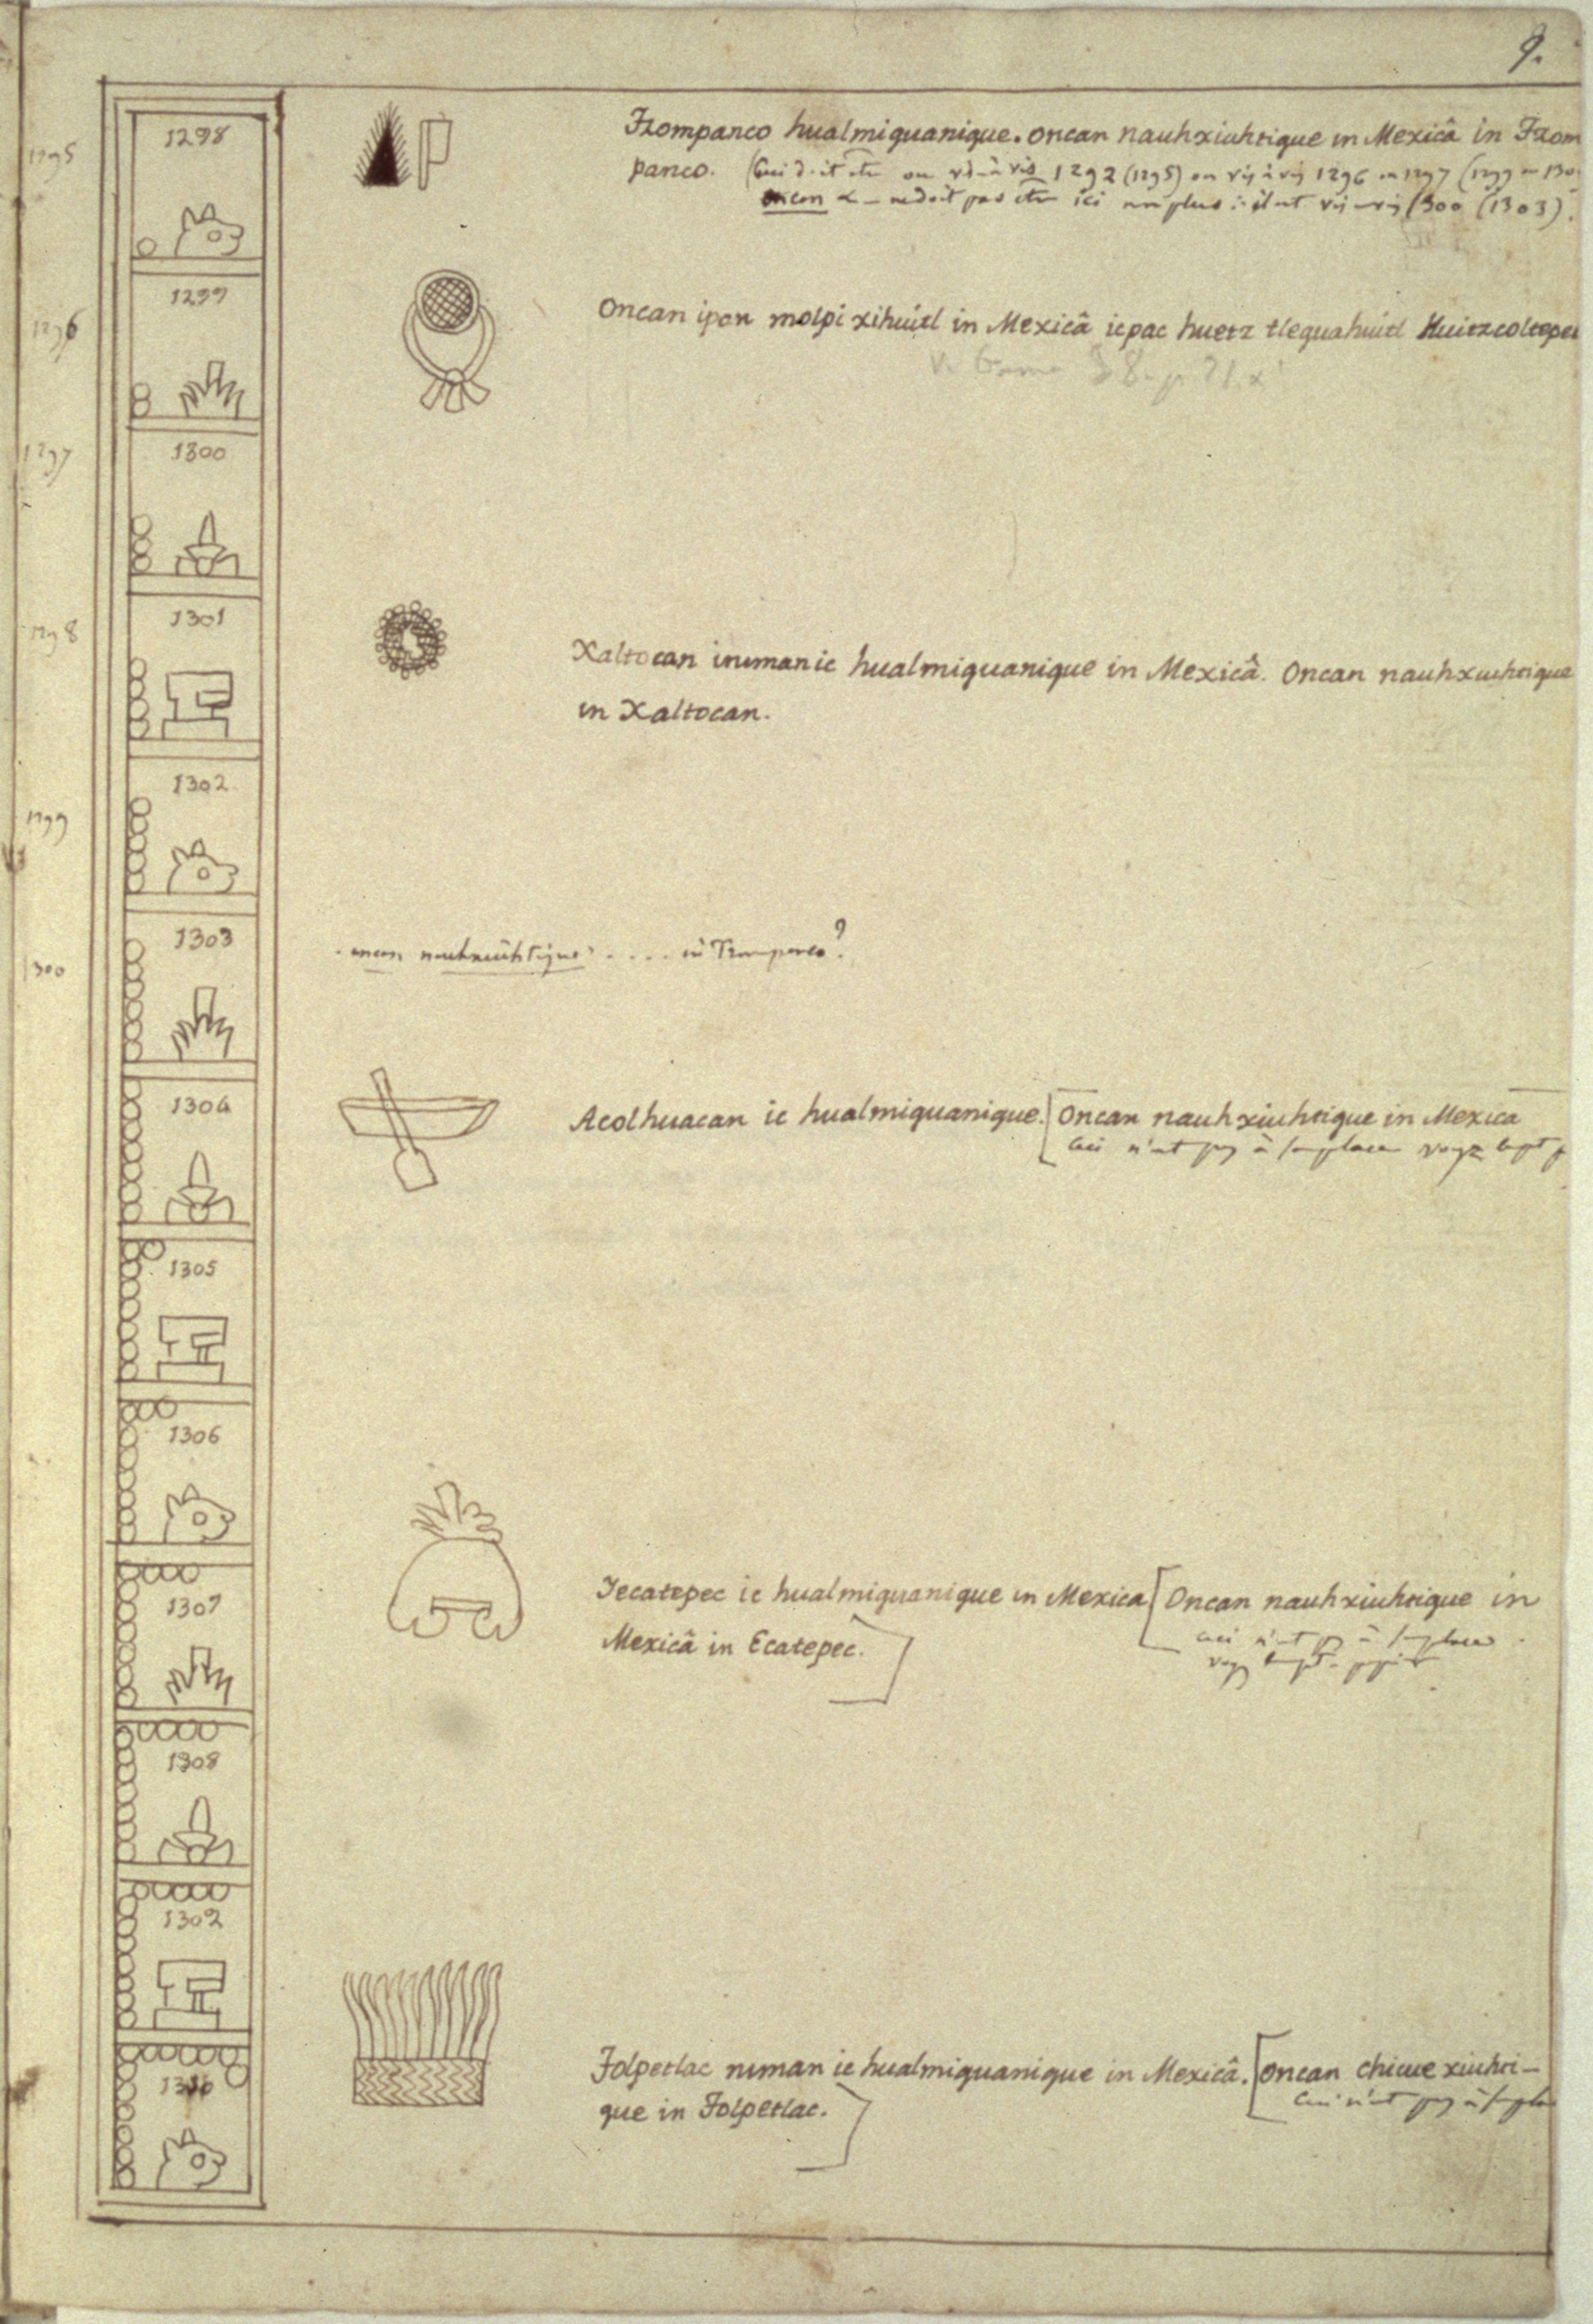 9.
1298
1295
Tzompanco hualmiquanique. oncan nauhxiuhtique in Mexicâ in Tzom
panco. (Ceci doit être ou vis-à-vis 1292 (1295) ou vis à vis 1296 ou 1297 (1299 ou 130
oncan &- ne doit pas être ici non plus : il est vis-à-vis 1300 (1303).
1299
1296
Oncan ipan molpi xihuitl in Mexicâ icpac huetz tlequahuitl Huitzcoltepec
1300
1297
1301
1298
Xaltocan inuman ic hualmiquanique in Mexicâ. Oncan nauhxiuhtique
in Xaltocan.
1302
1299
1303
1300
oncan nauhxiuhtique . . . . in Tzompanco?
1304
Acolhuacan ic hualmiquanique. [Oncan nauhxiuhtique in Mexica
Ceci n'est pas à sa place voyez
1305
1306
1307
Iecatepec ic hualmiquanique in Mexica [Oncan nauhxiuhtique in
Mexicâ in Ecatepec.]
ceci n'est pas à sa place
1308
1309
1310
Tolpetlac niman ic hualmiquanique in Mexicâ. [oncan chicue xiuhti-
que in Tolpetlac.]
Ceci n'est pas à sa pla